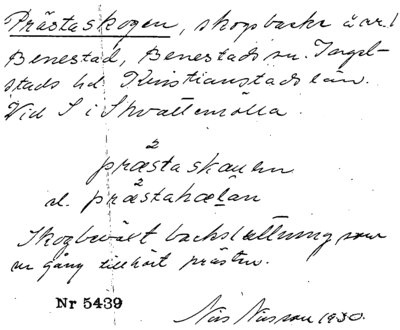 Prästaskogen, skogsbacke ä ar.!
Benestad, Benestads sn. Ingel-
stads hd Kristianstads län.
Vid S i Skvattemölla.
prästaskauen
el. prästahælan
Skogbeväxt backslättning som
en gång tillhört prästen.
Nr 5439
Nils Nilsson 1930.